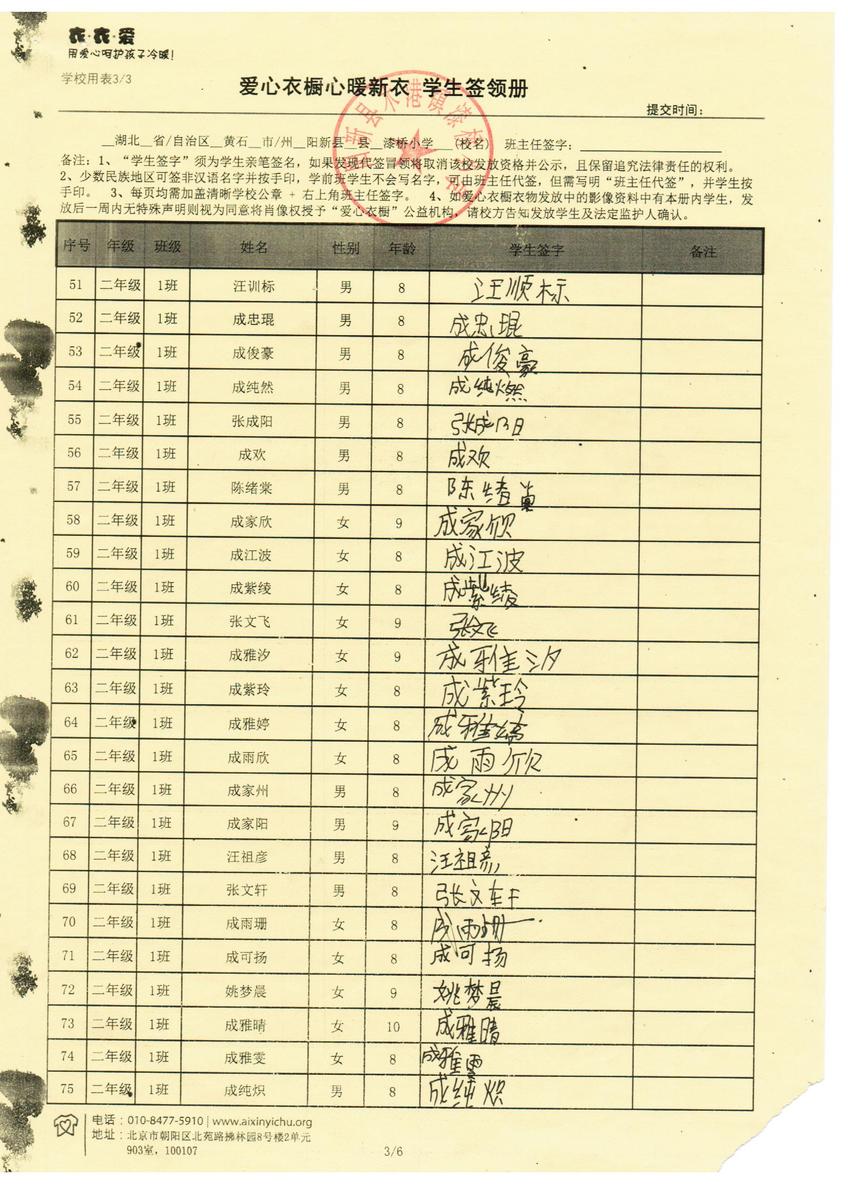 衣·衣·爱
用爱心呵护孩子冷暖！
学校用表3/3
爱心衣橱心暖新衣 学生签领册
提交时间：
__湖北__省/自治区__黄石__市/州__阳新县__县__漆桥小学__（校名） 班主任签字：
备注：1、“学生签字”须为学生亲笔签名，如果发现代签冒领将取消该校发放资格并公示，且保留追究法律责任的权利。
2、少数民族地区可签非汉语名字并按手印，学前班学生不会写名字，可由班主任代签，但需写明“班主任代签”，并学生按
手印。 3、每页均需加盖清晰学校公章 + 右上角班主任签字。 4、如爱心衣橱衣物发放中的影像资料中有本册内学生，发
放后一周内无特殊声明则视为同意将肖像权授予“爱心衣橱”公益机构，请校方告知发放学生及法定监护人确认。
序号 年级 班级 姓名 性别 年龄 学生签字 备注
51 二年级 1班 汪训标 男 8 汪顺标
52 二年级 1班 成忠琨 男 8 成忠琨
53 二年级 1班 成俊豪 男 8 成俊豪
54 二年级 1班 成纯然 男 8 成纯燃
55 二年级 1班 张成阳 男 8 张成阳
56 二年级 1班 成欢 男 8 成欢
57 二年级 1班 陈绪棠 男 8 陈绪
58 二年级 1班 成家欣 女 9 成家欣
59 二年级 1班 成江波 女 8 成江波
60 二年级 1班 成紫绫 女 8 成紫绫
61 二年级 1班 张文飞 女 9 张文飞
62 二年级 1班 成雅汐 女 9 成雅汐
63 二年级 1班 成紫玲 女 8 成紫玲
64 二年级 1班 成雅婷 女 8 成雅婷
65 二年级 1班 成雨欣 女 8 成雨欣
66 二年级 1班 成家州 男 8 成家州
67 二年级 1班 成家阳 男 9 成家阳
68 二年级 1班 汪祖彦 男 8 汪祖彦
69 二年级 1班 张文轩 男 8 张文轩
70 二年级 1班 成雨珊 女 8 成雨珊
71 二年级 1班 成可扬 女 8 成可扬
72 二年级 1班 姚梦晨 女 9 姚梦晨
73 二年级 1班 成雅晴 女 10 成雅晴
74 二年级 1班 成雅雯 女 8 成雅雯
75 二年级 1班 成纯炽 男 8 成纯炽
电话：010-8477-5910 | www.aixinyichu.org
地址：北京市朝阳区北苑路拂林园8号楼2单元
903室，100107
3/6